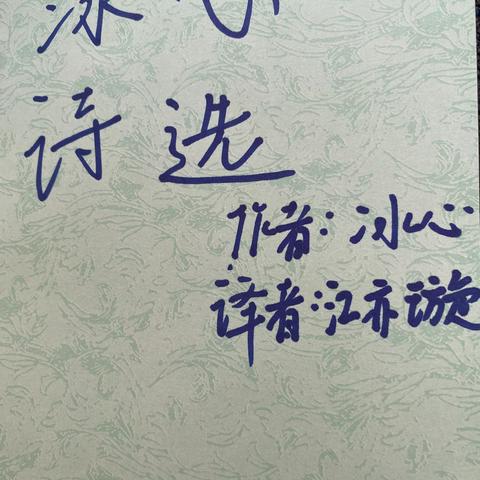 诗选
作者:冰心
译者:江亦璇